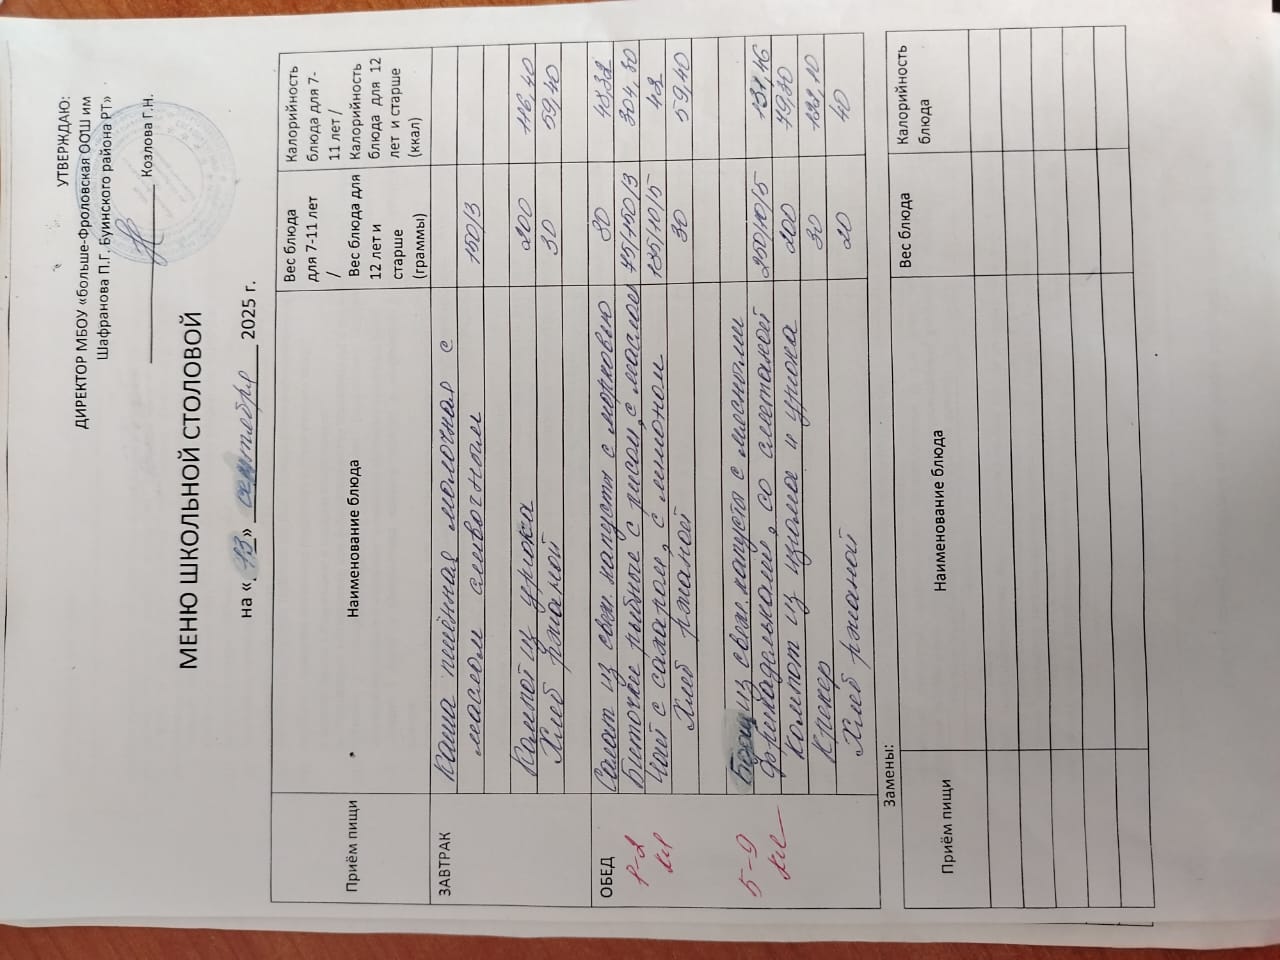 УТВЕРЖДАЮ:
ДИРЕКТОР МБОУ «больше-Фроловская ООШ им
Шафранова П.Г. Буинского района РТ»
Козлова Г.Н.
МЕНЮ ШКОЛЬНОЙ СТОЛОВОЙ
на «13» сентября 2025 г.
Приём пищи Наименование блюда Вес блюда для 7-11 лет / Вес блюда для 12 лет и старше (граммы) Калорийность блюда для 7-11 лет / Калорийность блюда для 12 лет и старше (ккал)
ЗАВТРАК Каша пшённая молочная с
маслом сливочным 150/3
Компот из урюка 200 116,40
Хлеб ржаной 30 59,40
ОБЕД Салат из свеж. капусты с морковью 30
Биточки рыбные с рисом, с маслом 75/150/3 304,50
Чай с сахаром, с лимоном 185/10/5 48
Хлеб ржаной 30 59,40
Борщ из свеж. капусты с мясными
5-9 кл фрикадельками, со сметаной 250/10/5 131,46
Компот из изюма и урюка 200 79,80
Крекер 30
Хлеб ржаной 20 40
Замены:
Приём пищи Наименование блюда Вес блюда Калорийность блюда